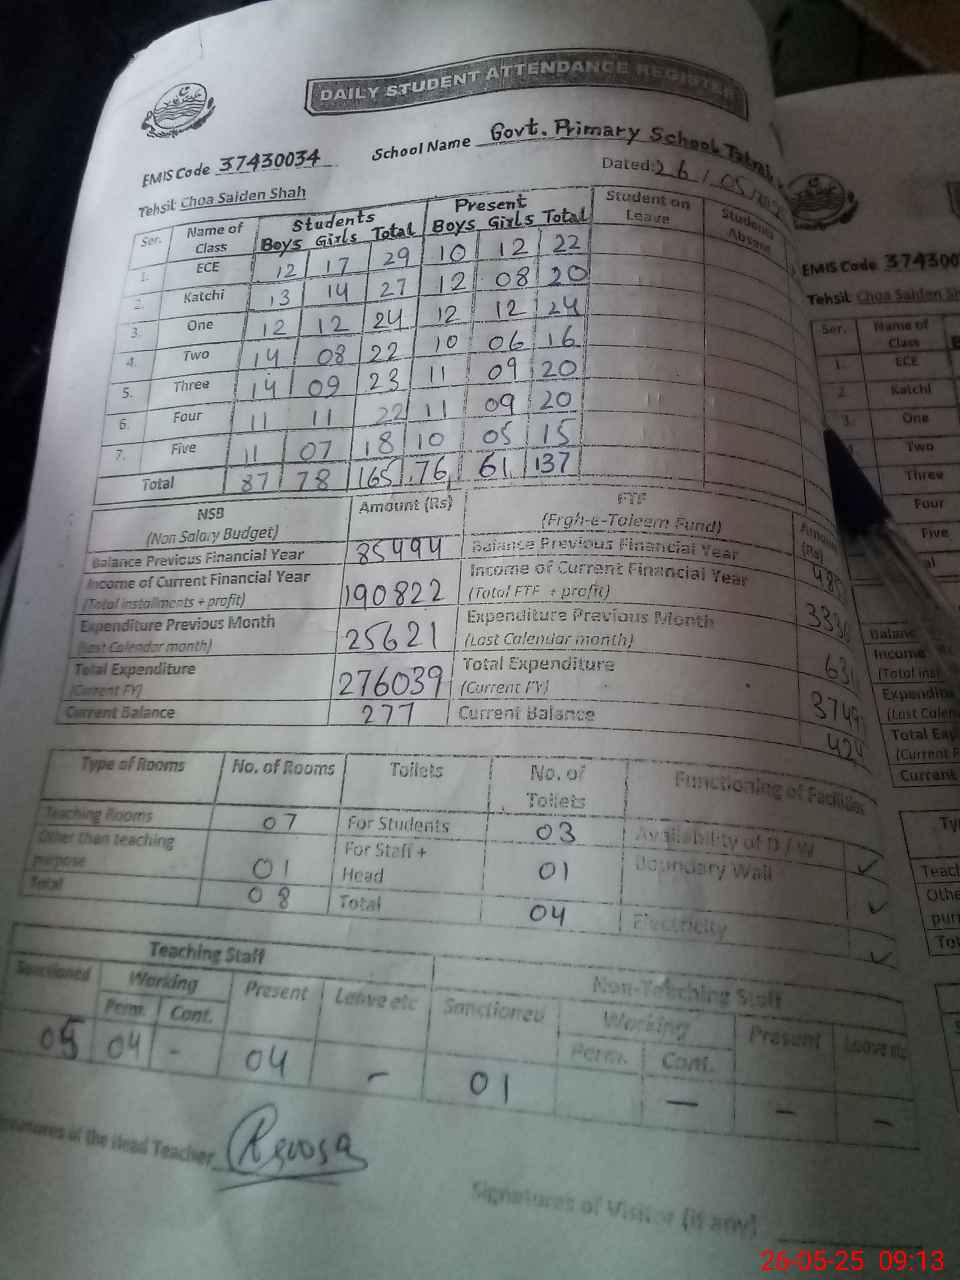 DAILY STUDENT ATTENDANCE REGISTER
EMIS Code 37430034 School Name Govt. Primary School
Tehsil: Choa Saiden Shah Dated: 26/05/
Ser. Name of Class Students Boys Girls Total Present Boys Girls Total Student on Leave Students Absent
1. ECE 12 17 29 10 12 22
2. Katchi 13 14 27 12 08 20
3. One 12 12 24 12 12 24
4. Two 14 08 22 10 06 16
5. Three 14 09 23 11 09 20
6. Four 11 11 22 11 09 20
7. Five 11 07 18 10 05 15
Total 87 78 165 76 61 137
NSB (Non Salary Budget) Amount (Rs) FTF (Frgh-e-Taleem Fund) Amount (Rs)
Balance Previous Financial Year 85494 Balance Previous Financial Year
Income of Current Financial Year (Total installments + profit) 190822 Income of Current Financial Year (Total FTF + profit)
Expenditure Previous Month (Last Calendar month) 25621 Expenditure Previous Month (Last Calendar month)
Total Expenditure (Current FY) 276039 Total Expenditure (Current FY)
Current Balance 277 Current Balance 424
Type of Rooms No. of Rooms Toilets No. of Toilets Functioning of Facilities
Teaching Rooms 07 For Students 03 Availability of D/W ✓
Other than teaching purpose 01 For Staff + Head 01 Boundary Wall ✓
Total 08 Total 04 Electricity ✓
Teaching Staff Non-Teaching Staff
Sanctioned Working Perm. Cont. Present Leave etc Sanctioned Working Perm. Cont. Present Leave etc
05 04 - 04 - 01 - - -
Signatures of the Head Teacher
Signatures of Visitor (if any)
EMIS Code 374300
Tehsil: Choa Saiden Sh
Ser. Name of Class
1. ECE
2. Katchi
3. One
Two
Three
Four
Five
Balanc
Income
(Total inst
Expenditu
(Last Calen
Total Exp
(Current F
Current
Ty
Teach
Othe
pur
Tot
26-05-25 09:13